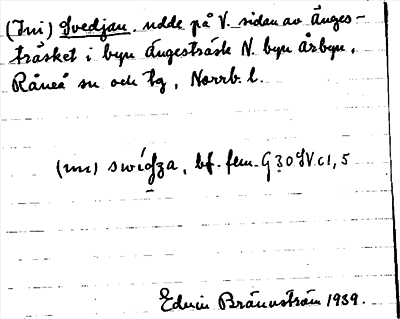 (Ini) Svedjan. udde på V. sidan av Änges-
träsket i byn Ängesträsk N. byn Årbyn,
Råneå sn och tg, Norrb. l.
(ini) swidza, bf. fem. G 30 SV. c1, 5
Edvin Brännström 1939.